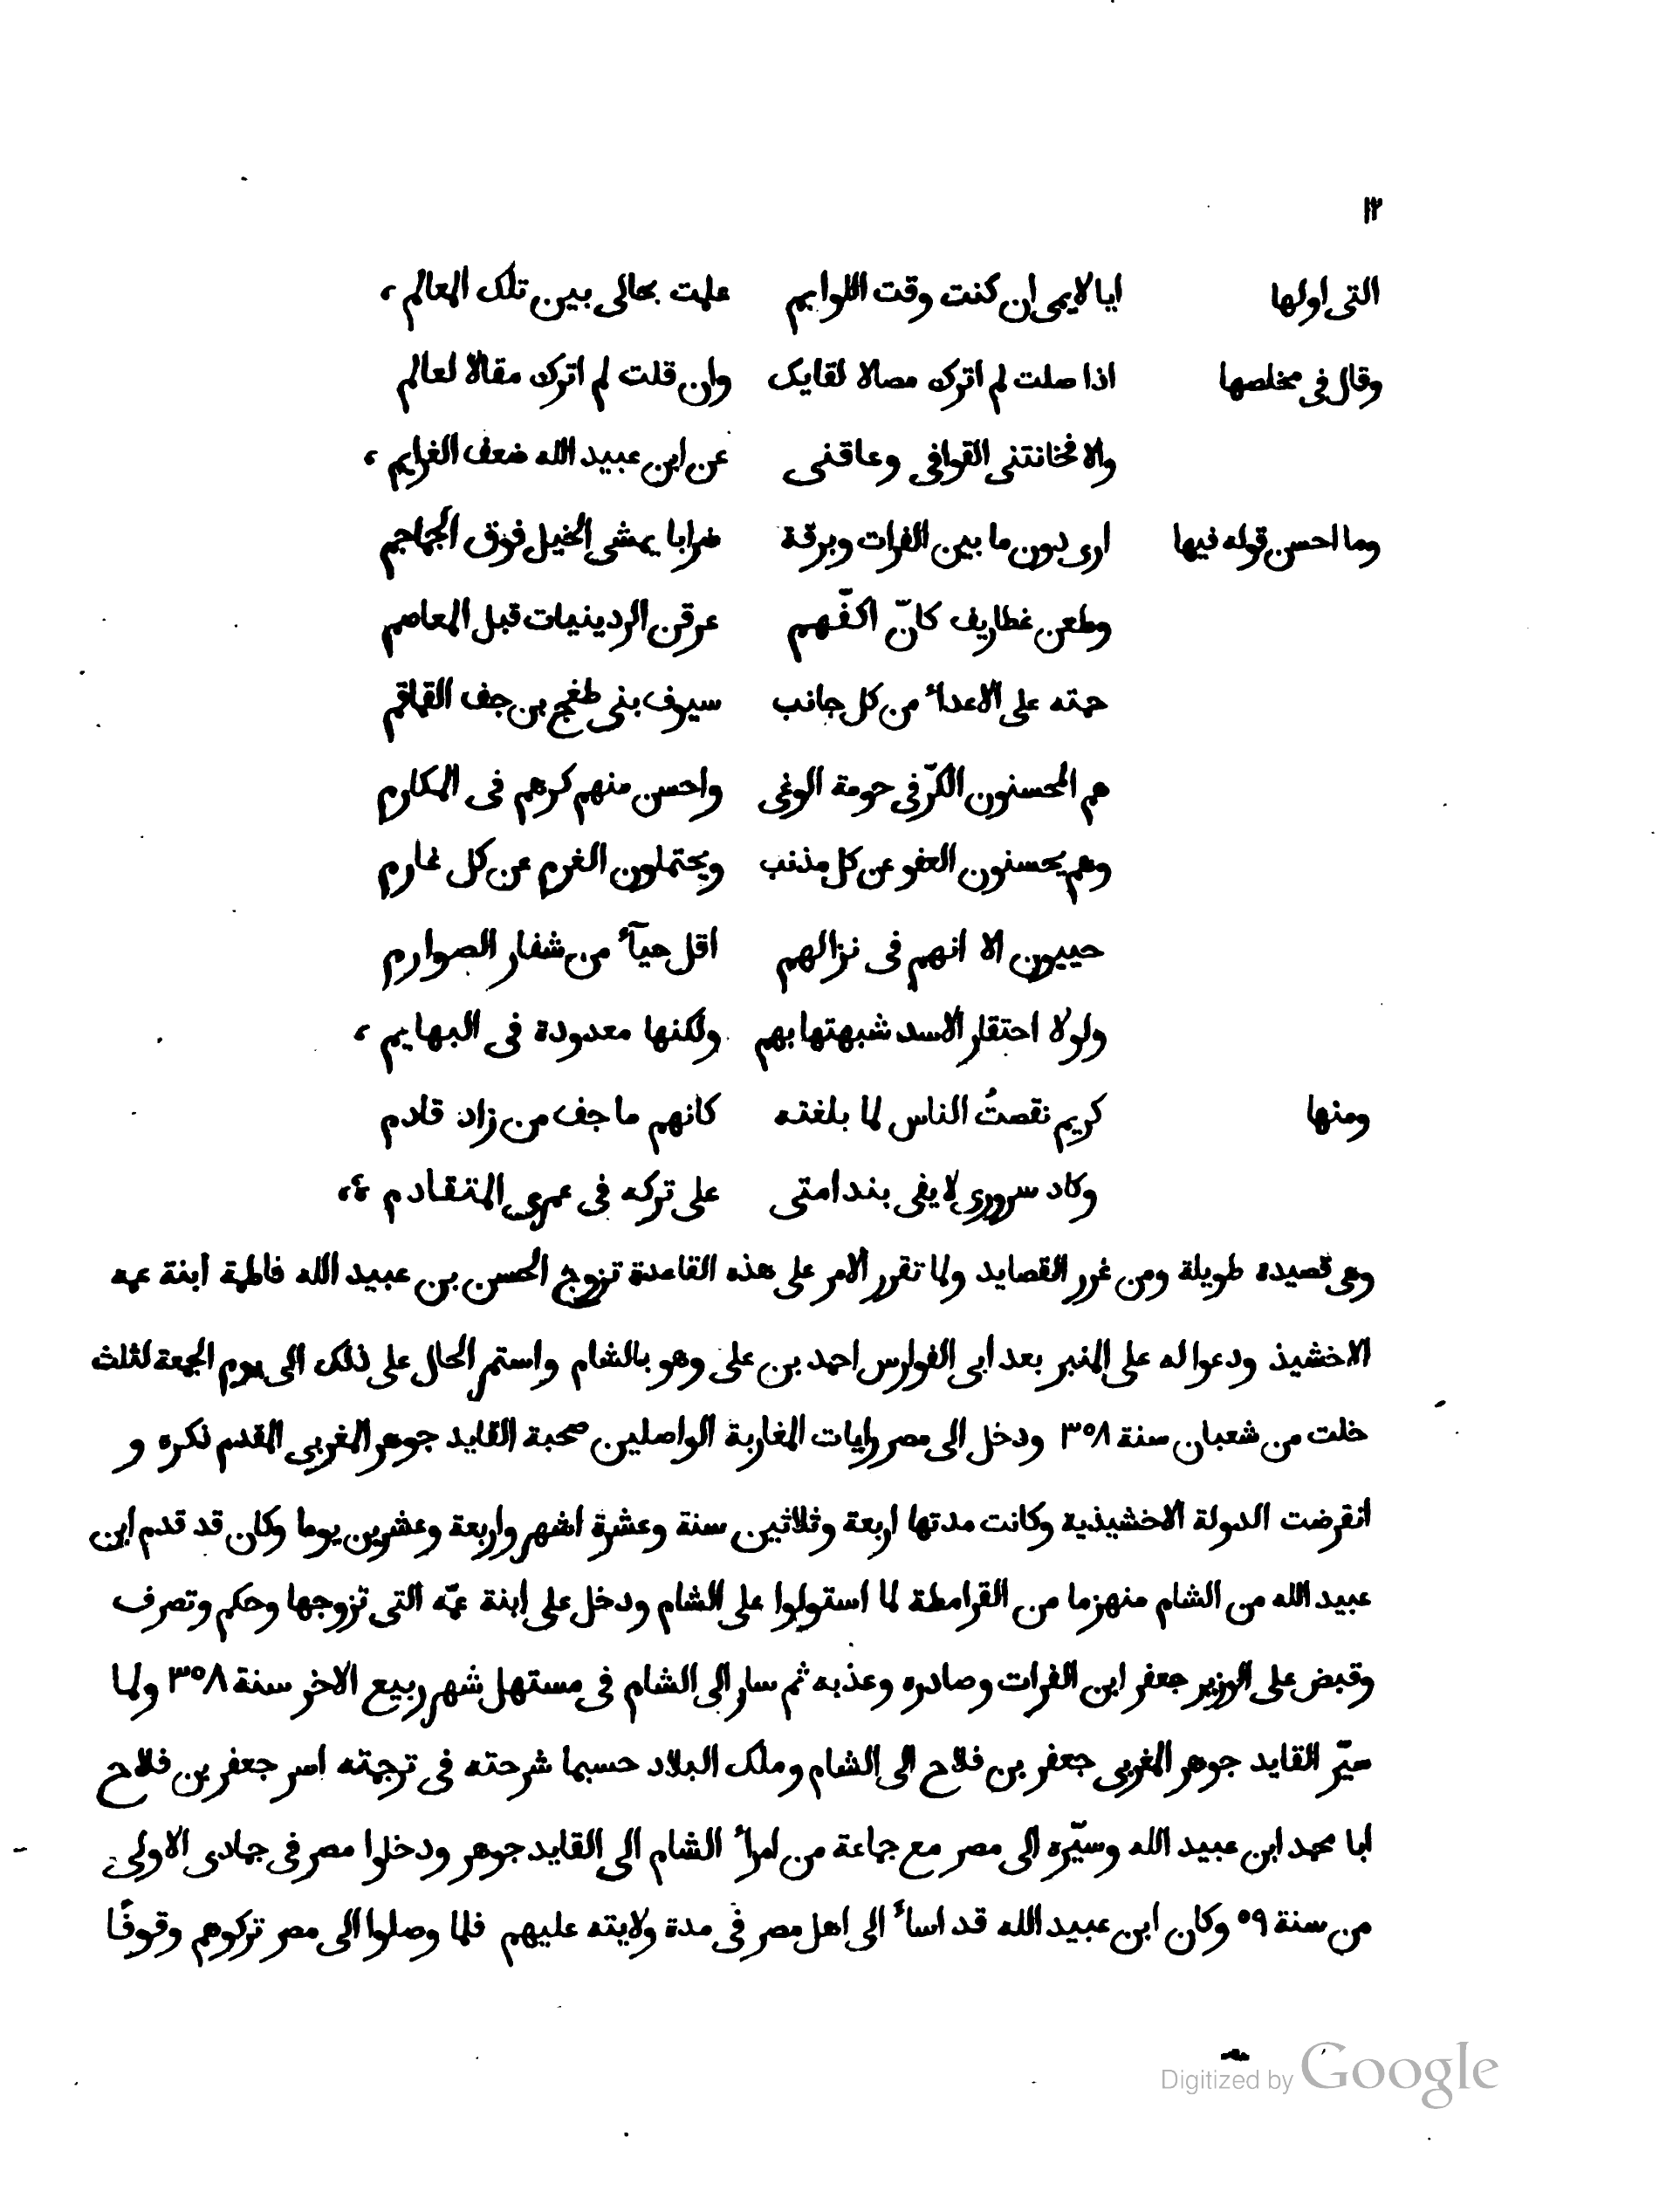 ١٢
التى اولها ايا لايمى ان كنت وقت اللوايم علمت بحالى بين تلك المعالم ،
وقال فى مخلصها اذا صلت لم اترك مصالا لفايك وان قلت لم اترك مقالا لعالم
والا فخانتنى القوافى وعاقنى عن ابن عبيد الله ضعف الغرايم ،
وما احسن قوله فيها ارى دون ما بين الفرات وبرقة ضرابا يمشى الخيل فوق الجماجم
وطعن غطاريف كانّ اكفّهم عرقن الردينيات قبل المعاصم
حمته على الاعداء من كل جانب سيوف بنى طغج بن جف القماقم
هم المحسنون الكرّ فى حومة الوغى واحسن منهم كرهم فى المكارم
وهم يحسنون العفو عن كل مذنب ويحتملون الغرم عن كل غارم
حييون الا انهم فى نزالهم اقل حيآء من شفار الصوارم
ولولا احتقار الاسد شبهتها بهم ولكنها معدودة فى البهايم ،
ومنها كريم نقصتُ الناس لما بلغته كانهم ما جف من زاد قادم
وكاد سرورى لا يفى بندامتى على تركه فى عمرى المتقادم ،
وهى قصيده طويلة ومن غرر القصايد ولما تقرر الامر على هذه القاعدة تزوج الحسن بن عبيد الله فاطمة ابنة عمه
الاخشيذ ودعوا له على المنبر بعد ابى الفوارس احمد بن على وهو بالشام واستمر الحال على ذلك الى يوم الجمعة لثلث
خلت من شعبان سنة ٣٥٨ ودخل الى مصر رايات المغاربة الواصلين صحبة القايد جوهر المغربى المقدم ذكره و
انقرضت الدولة الاخشيذية وكانت مدتها اربعة وثلاثين سنة وعشرة اشهر واربعة وعشرين يوما وكان قد قدم ابن
عبيد الله من الشام منهزما من القرامطة لما استولوا على الشام ودخل على ابنة عمّه التى تزوجها وحكم وتصرف
وقبض على الوزير جعفر ابن الفرات وصادره وعذبه ثم سار الى الشام فى مستهل شهر ربيع الاخر سنة ٣٥٨ ولما
سيّر القايد جوهر المغربى جعفر بن فلاح الى الشام وملك البلاد حسبما شرحته فى ترجمته اسر جعفر بن فلاح
ابا محمد ابن عبيد الله وسيّره الى مصر مع جماعة من امراء الشام الى القايد جوهر ودخلوا مصر فى جمادى الاولى
من سنة ٥٩ وكان ابن عبيد الله قد اساء الى اهل مصر فى مدة ولايته عليهم فلما وصلوا الى مصر تركوهم وقوفًا
Digitized by Google